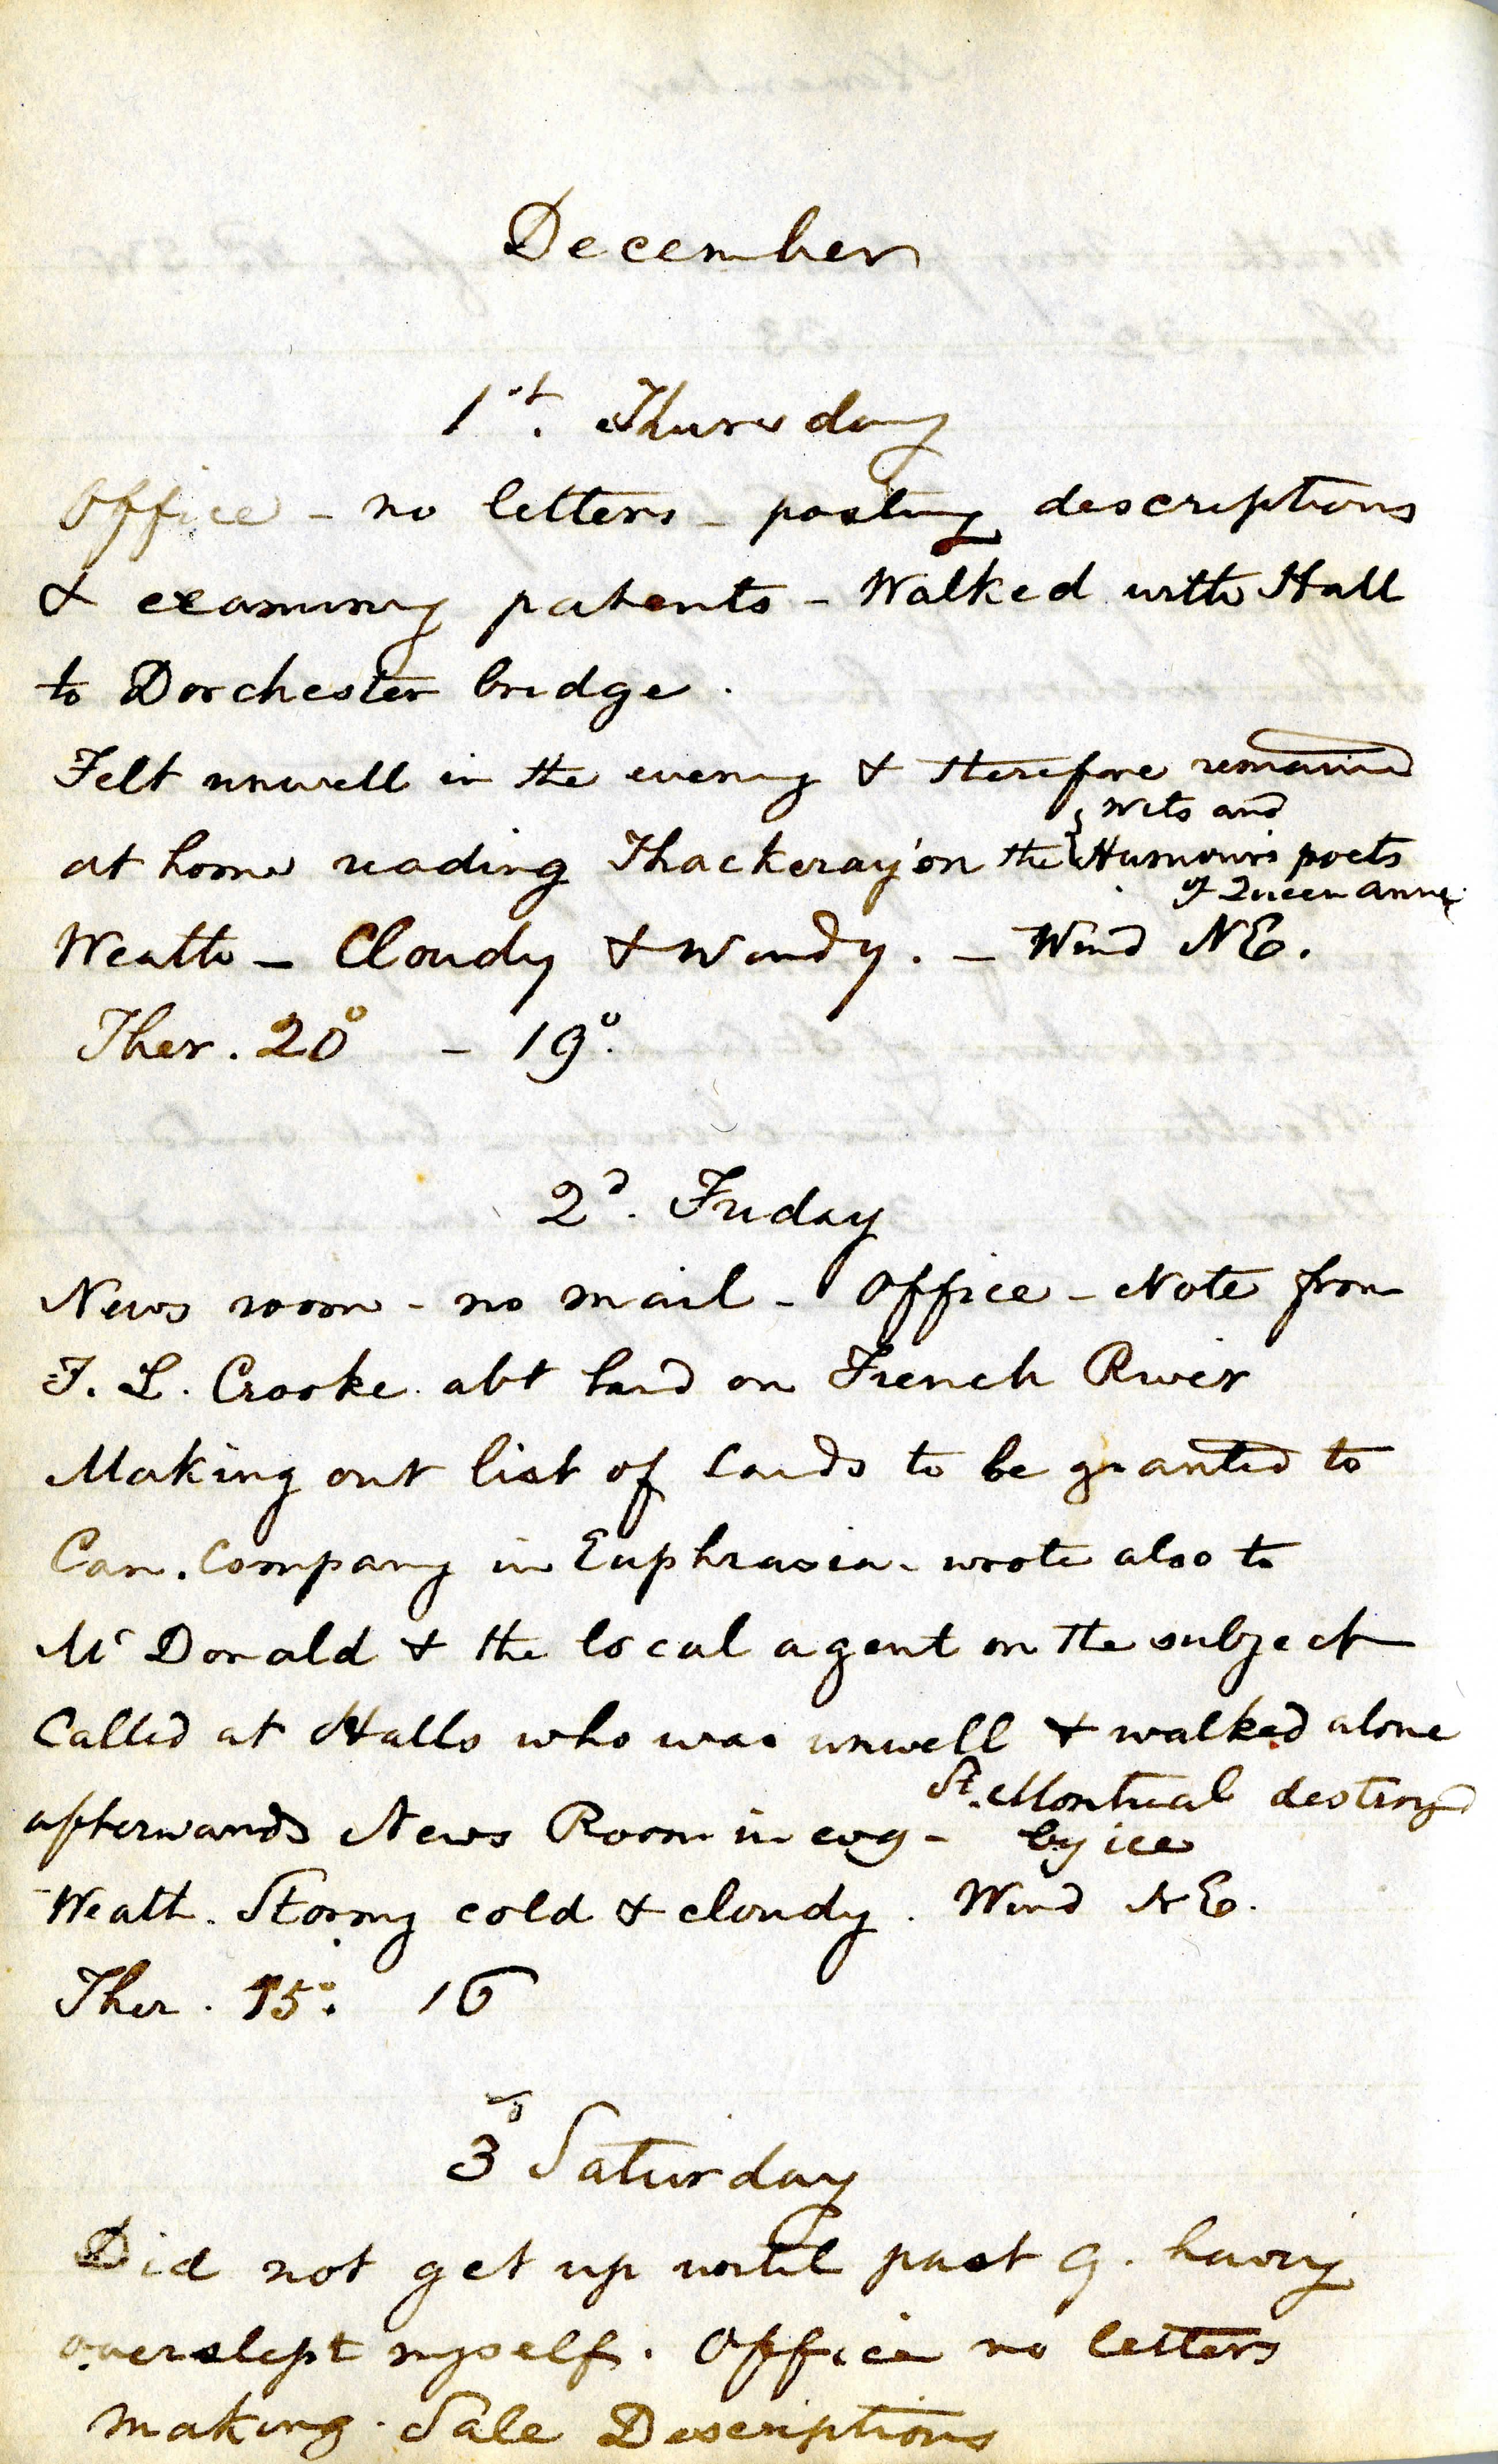 December
1st. Thursday
Office - no letters - posting descriptions
& examining patents - Walked with Hall
to Dorchester bridge.
Felt unwell in the evening & therefore remained
at home reading Thackeray on the { Wits and
Humours poets
of Queen Anne.
Weath - Cloudy & Windy. - Wind NE.
Ther. 20° - 19°.
2d. Friday
News room - no mail - Office - Note from
F. L. Crooke abt land on French River
Making out list of lands to be granted to
Can. Company in Euphrasia. wrote also to
Mc Donald & the local agent on the subject
Called at Halls who was unwell & walked alone
afterwards News Room in evg - St. Montreal destroyed
by ice
Weath. Stormy cold & cloudy. Wind NE.
Ther. 15°. 16
3d Saturday
Did not get up until past 9. having
overslept myself. Office no letters
making Sale Descriptions